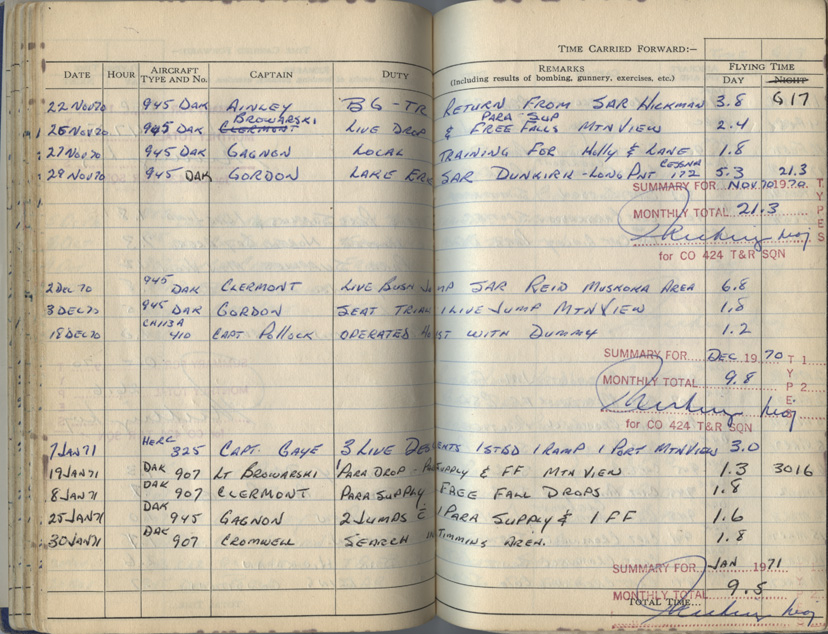 TIME CARRIED FORWARD:–
DATE HOUR AIRCRAFT TYPE AND NO. CAPTAIN DUTY REMARKS (Including results of bombing, gunnery, exercises, etc.) FLYING TIME DAY NIGHT
22 NOV 70 945 DAK AINLEY BG-TR RETURN FROM SAR HICKMAN 3.8 617
BROWARSKI PARA-SUP
26 NOV 70 945 DAK CLERMONT LIVE DROP & FREE FALLS MTN VIEW 2.4
27 NOV 70 945 DAK GAGNON LOCAL TRAINING FOR HOLLY & LANE 1.8
CESSNA
29 NOV 70 945 DAK GORDON LAKE ERIE SAR DUNKIRK-LONG PNT 172 5.3 21.3
SUMMARY FOR NOV. 70 1970 TYPES
MONTHLY TOTAL 21.3
Maj
for CO 424 T&R SQN
945
2 DEC 70 DAK CLERMONT LIVE BUSH JUMP SAR REID MUSKOKA AREA 6.8
3 DEC 70 945 DAK GORDON SEAT TRIAL 1 LIVE JUMP MTN VIEW 1.8
CH113A
18 DEC 70 410 CAPT POLLOCK OPERATED HOIST WITH DUMMY 1.2
SUMMARY FOR DEC. 1970 TYPE 1 2
MONTHLY TOTAL 9.8
Maj
for CO 424 T&R SQN
HERC
7 JAN 71 325 CAPT. GAYE 3 LIVE DESCENTS 1 STBD 1 RAMP 1 PORT MTN VIEW 3.0
DAK
19 JAN 71 907 LT BROWARSKI PARA DROP - PARA SUPPLY & FF MTN VIEW 1.3 3016
DAK
8 JAN 71 907 CLERMONT PARA SUPPLY FREE FALL DROPS 1.8
DAK
25 JAN 71 945 GAGNON 2 JUMPS C 1 PARA SUPPLY & 1 FF 1.6
DAK
30 JAN 71 907 CROMWELL SEARCH IN TIMMINS AREA. 1.8
SUMMARY FOR JAN 1971
MONTHLY TOTAL 9.5
TOTAL TIME
Maj